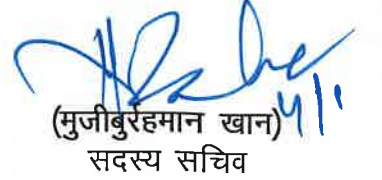 (मुजीबुर्रहमान खान) 4/1
सदस्य सचिव